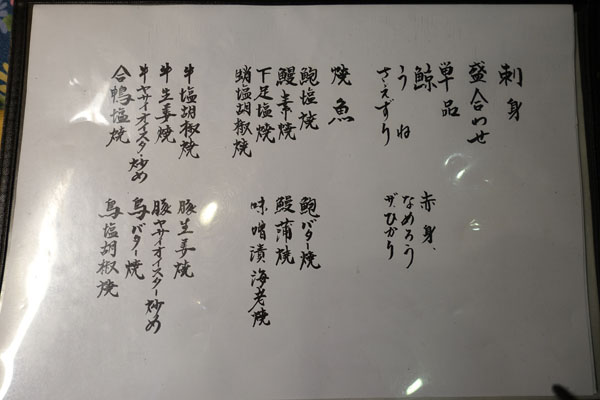 刺身
盛合わせ
単品
鯨
うね
さえずり
赤身
なめろう
焼魚
鮑塩焼
鰻素焼
下足塩焼
蛸塩胡椒焼
鮑バター焼
鰻蒲焼
味噌漬海老焼
牛塩胡椒焼
牛生姜焼
牛ヤサイオイスター炒め
合鴨塩焼
豚生姜焼
豚ヤサイオイスター炒め
鳥バター焼
鳥塩胡椒焼